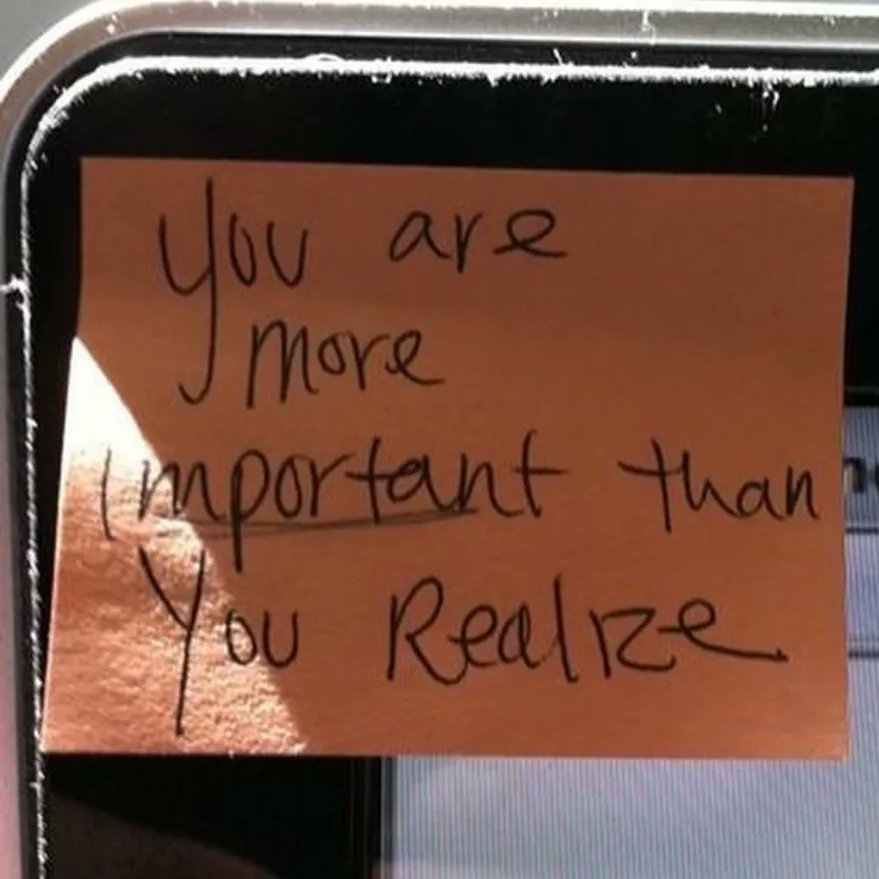 You are
more
important than
You Realize